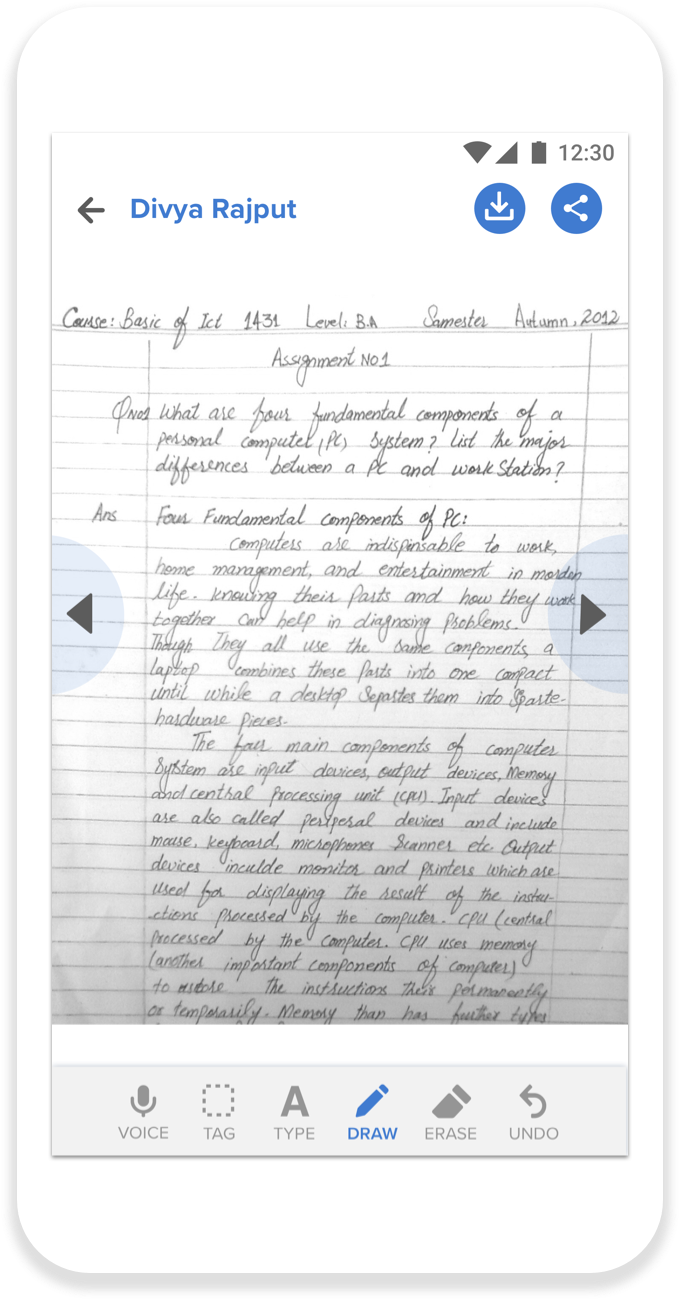 12:30
Divya Rajput
Course: Basic of Ict 1431 Level: B.A Samester Autumn, 2012
Assignment NO1
QNo1 What are four fundamental components of a
personal computer (PC) System? List the major
differences between a PC and work Station?
Ans Four Fundamental components of PC:
Computers are indispinsable to work,
home management, and entertainment in morden
life. knowing their Parts and how they work
together can help in diagnosing Problems.
Though They all use the same components, a
laptop combines these Parts into one compact
until while a desktop Sepastes them into Sparte-
hardware Pieces.
The four main components of computer
System are input devices, output devices, Memory
and central Processing unit (CPU). Input devices
are also called periperal devices and include
mouse, keyboard, microphones Scanner etc. Output
devices inculde monitor and printers which are
used for displaying the result of the instru-
-ctions processed by the computer. CPU (central
Processed by the computer. CPU uses memory
(another important components of computer)
to the instructions their permanently
or temporarily. Memory than has further types
VOICE TAG TYPE DRAW ERASE UNDO